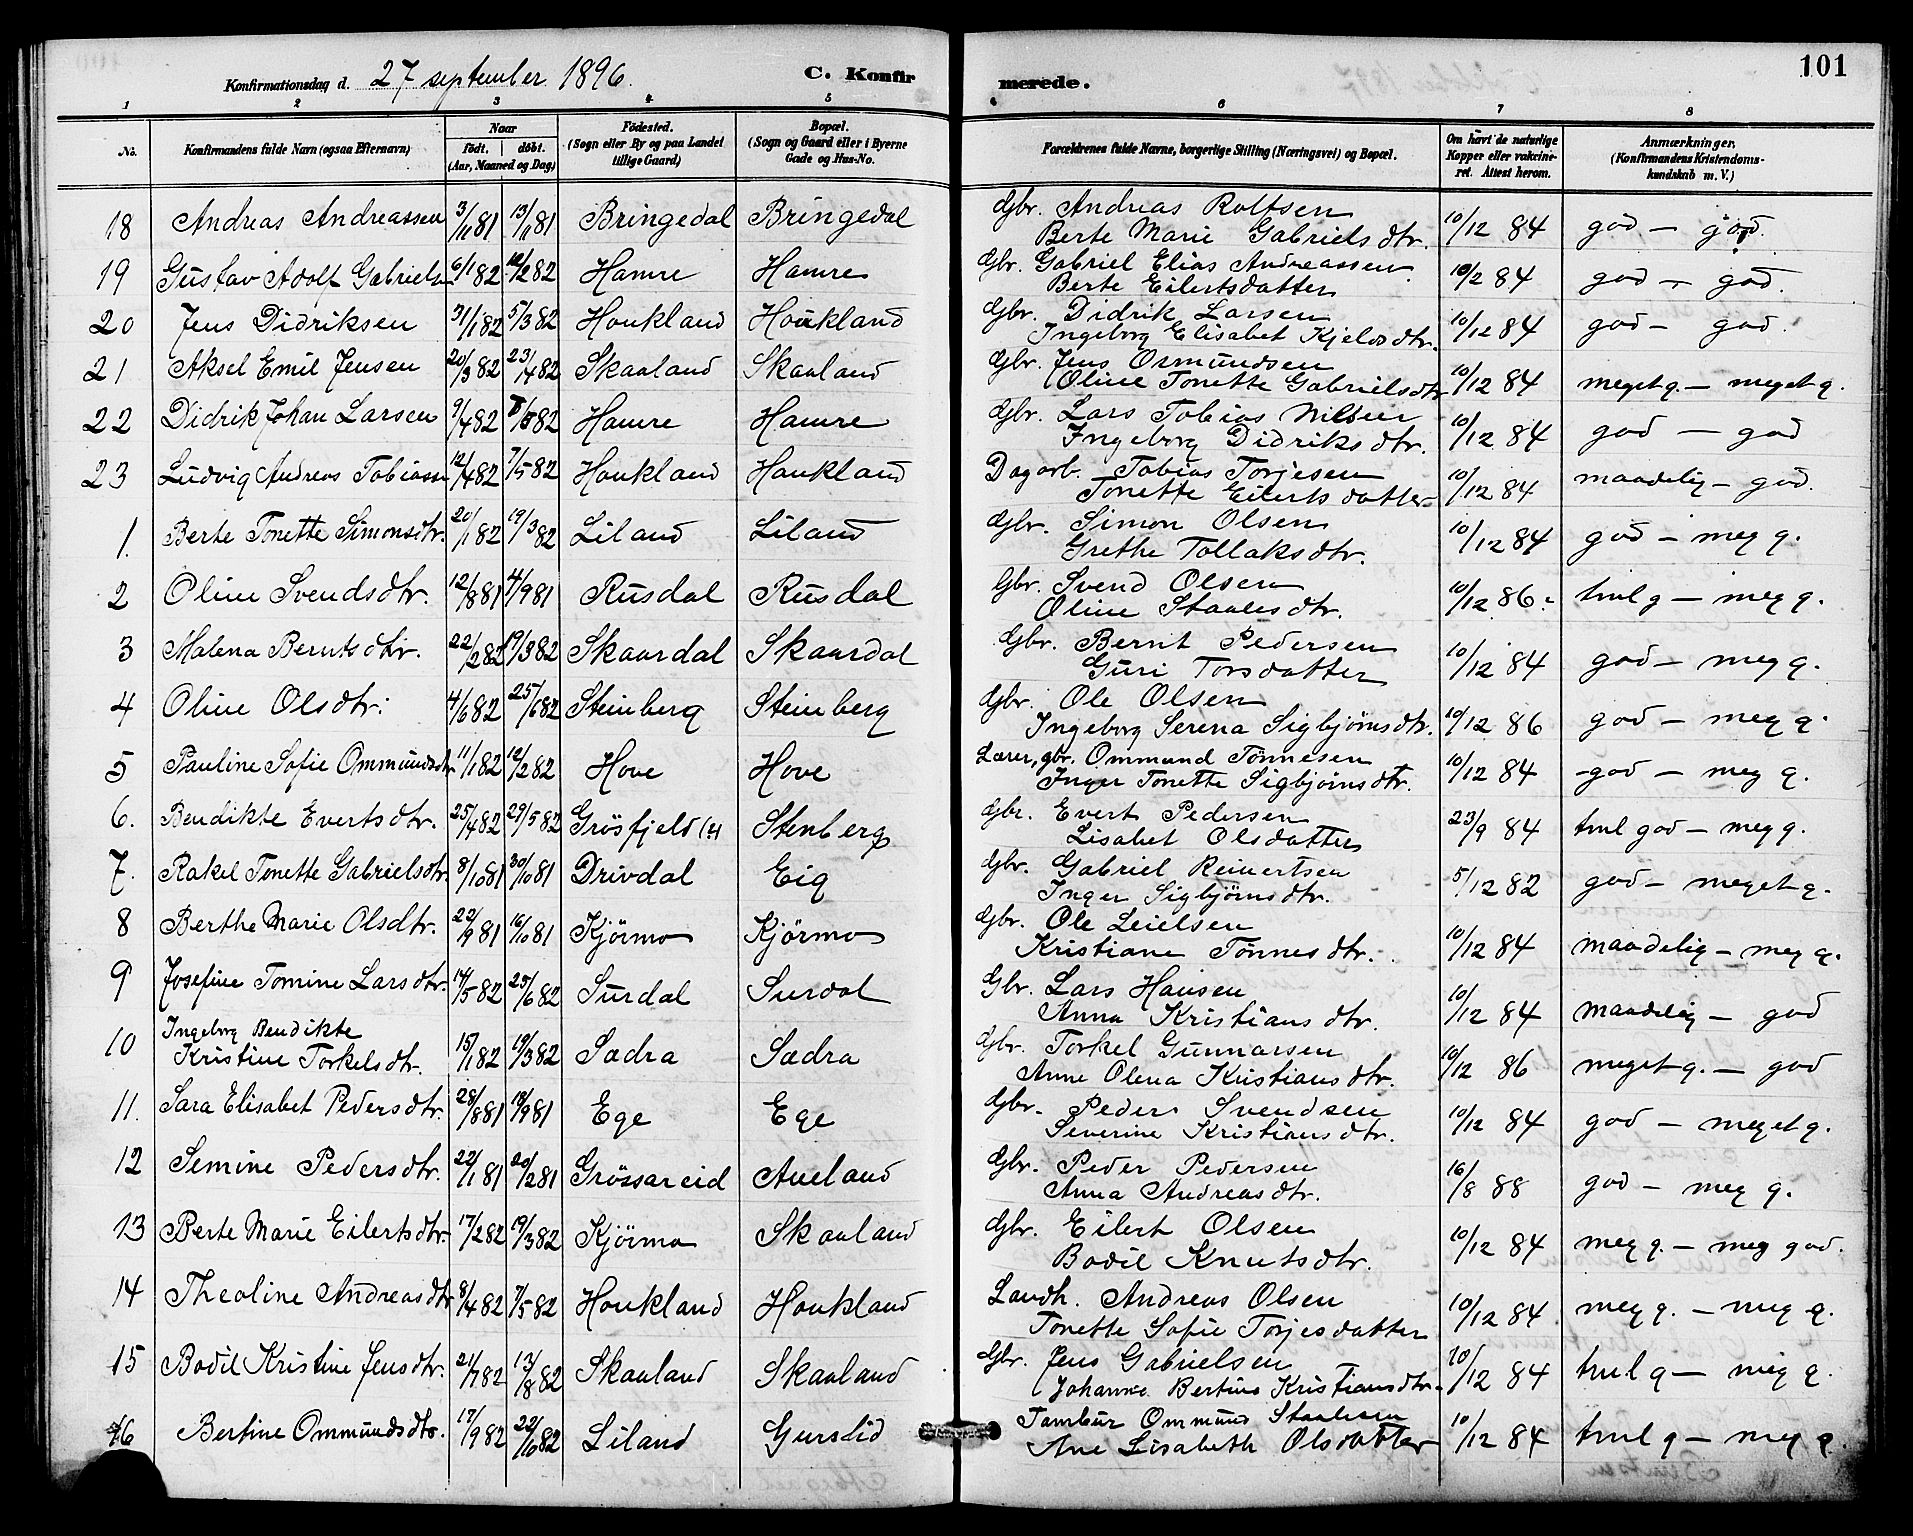 101
Konfirmationsdag d. 27 september 1896. C. Konfir merede.
1 2 3 4 5 6 7 8
No. Konfirmandens fulde Navn (ogsaa Efternavn) Naar Födt. döbt. (Aar, Maaned og Dag) Födested. (Sogn eller By og paa Landet tillige Gaard) Bopæl. (Sogn og Gaard eller i Byerne Gade og Hus-No. Forældrenes fulde Navne, borgerlige Stilling (Næringsvei) og Bopæl. Om havt de naturlige Kopper eller vakcineret. Attest herom. Anmærkninger, (Konfirmandens Kristendomskundskab m. V.)
18 Andreas Andreassen 3/11 81 13/11 81 Bringedal Bringedal Gbr. Andreas Roltsen 10/12 84 god - god.
Berte Marie Gabrielsdtr.
19 Gustav Adolf Gabrielsn 6/1 82 12/2 82 Hamre Hamre Gbr. Gabriel Elias Andreassen 10/2 84 god - god.
Berte Eilertsdatter
20 Jens Didriksen 31/1 82 5/3 82 Houkland Houkland Gbr. Didrik Larsen 10/12 84 god - god.
Ingeborg Elisabet Kjeldsdtr.
21 Aksel Emil Jensen 20/3 82 23/4 82 Skaaland Skaaland Gbr. Jens Ommundsen 10/12 84 meget g. - meget g.
Oline Tonette Gabrielsdtr
22 Didrik Johan Larsen 9/4 82 82 Hamre Hamre Gbr. Lars Tobias Nilsen 10/12 84 god - god
Ingeborg Didriksdtr.
23 Ludvig Andreas Tobiassn 12/4 82 7/5 82 Houkland Haukland Dagarb. Tobias Torjesen 10/12 84 maadelig - god.
Tonette Eilertsdatter
1. Berte Tonette Simonsdtr. 20/1 82 19/3 82 Liland Liland Gbr. Simon Olsen 10/12 84 god - meg g.
Grethe Tollaksdtr.
2 Oline Svendsdtr. 12/8 81 4/9 81 Rusdal Rusdal Gbr. Svend Olsen 10/12 86. tml g - meg g.
Oline Staalesdtr.
3 Malena Berntsdtr. 22/2 82 19/3 82 Skaardal Skaardal Gbr. Bernt Pedersen 10/12 84 god - meg g.
Guri Torsdatter
4 Oline Olsdtr. 4/6 82 25/6 82 Steinberg Steinberg Gbr. Ole Olsen 10/12 86 god - meg g.
Ingeborg Serena Sigbjørnsdtr.
5 Pauline Sofie Ommundsdtr 11/1 82 12/2 82 Hove Hove Lærer, gbr. Ommund Tønnesen 10/12 84 god - meg g.
Inger Tonette Sigbjørnsdtr.
6. Bendikte Evertsdtr. 25/4 82 29/5 82 Grösfjeld Stenberg Gbr. Evert Pedersen 23/9 84 tml god - meg g.
Lisabet Olsdatter
7. Rakel Tonette Gabrielsdtr. 8/10 81 30/10 81 Drivdal Eig Gbr. Gabriel Reinertsen 5/12 82 god - meget g.
Inger Sigbjørnsdtr.
8 Berthe Marie Olsdtr. 22/9 81 16/10 81 Kjörmo Kjörmo Gbr. Ole Leielsen 10/12 84 maadelig - meg g.
Kristiane Tønnesdtr.
9 Josefine Tomine Larsdtr. 14/5 82 25/6 82 Surdal Surdal Gbr. Lars Hansen 10/12 84 maadelig - god
Anna Kristiansdtr.
10 Ingeborg Bendikte
Kristine Torkelsdtr. 15/1 82 19/3 82 Sædra Sædra Gbr. Torkel Gunnarsen 10/12 86 meget g. - god
Anne Olena Kristiansdtr.
11. Sara Elisabet Pedersdtr. 28/8 81 18/9 81 Ege Ege Gbr. Peder Svendsen 10/12 84 god - meget g.
Severine Kristiansdtr.
12 Semine Pedersdtr. 22/1 81 20/2 81 Grössareid Aueland Gbr. Peder Pedersen 16/8 88 god - meg g.
Anna Andreasdtr.
13 Berte Marie Eilertsdtr. 17/2 82 19/3 82 Kjörmo Skaaland Gbr. Eilert Olsen 10/12 84 meg g. - meg god.
Bodil Knutsdtr.
14 Theoline Andreasdtr 8/4 82 7/5 82 Houkland Houkland Landh. Andreas Olsen 10/12 84 meg g. - meg g.
Tonette Sofie Torjesdatter
15 Bodil Kristine Jensdtr. 21/7 82 13/8 82 Skaaland Skaaland Gbr. Jens Gabrielsen 10/12 84 tml g - meg g.
Johanne Bertine Kristiansdtr.
16 Bertine Ommundsdtr. 17/9 82 82 Liland Gurslid Tambur Ommund Staalesen 10/12 84 tml g - meg g.
Ane Lisabeth Olsdatter